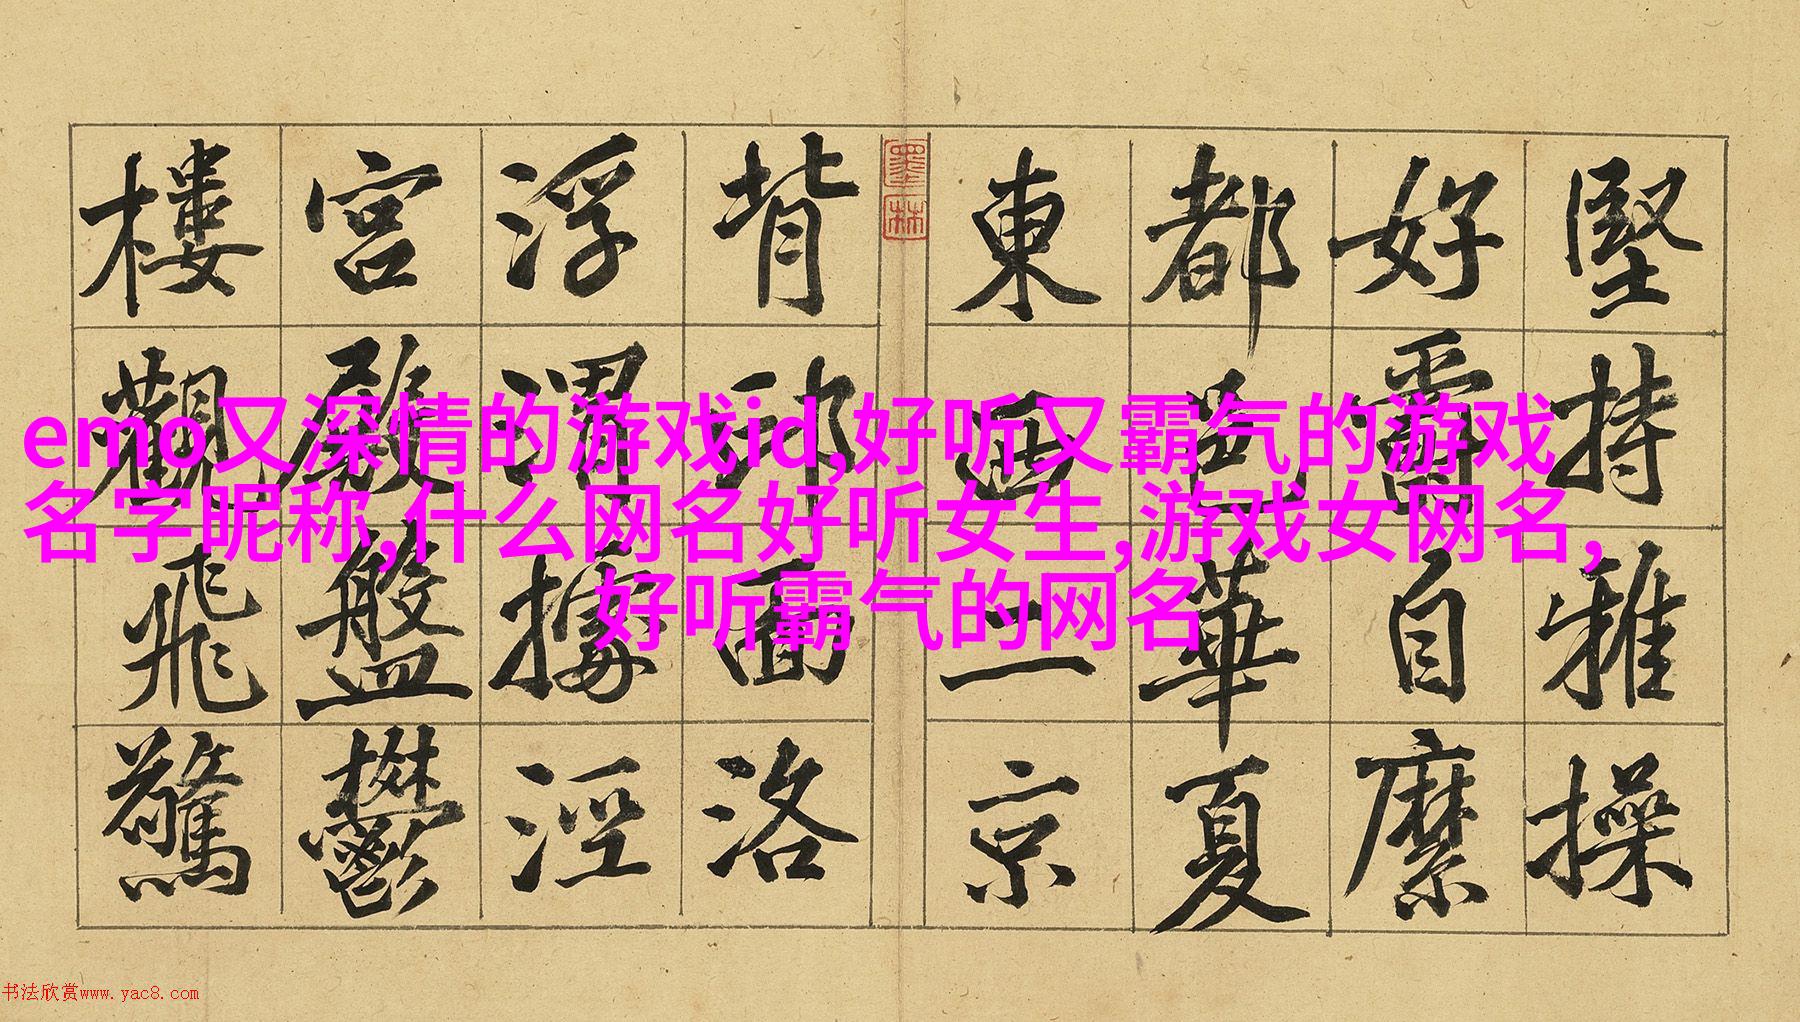 堅持雅操
好爵自縻
都邑華夏
東西二京
背邙面洛
浮渭據涇
宮殿盤鬱
樓觀飛驚
墨林
emo又深情的游戏id,好听又霸气的游戏
名字昵称,什么网名好听女生,游戏女网名,
好听霸气的网名
书法欣赏www.yac8.com